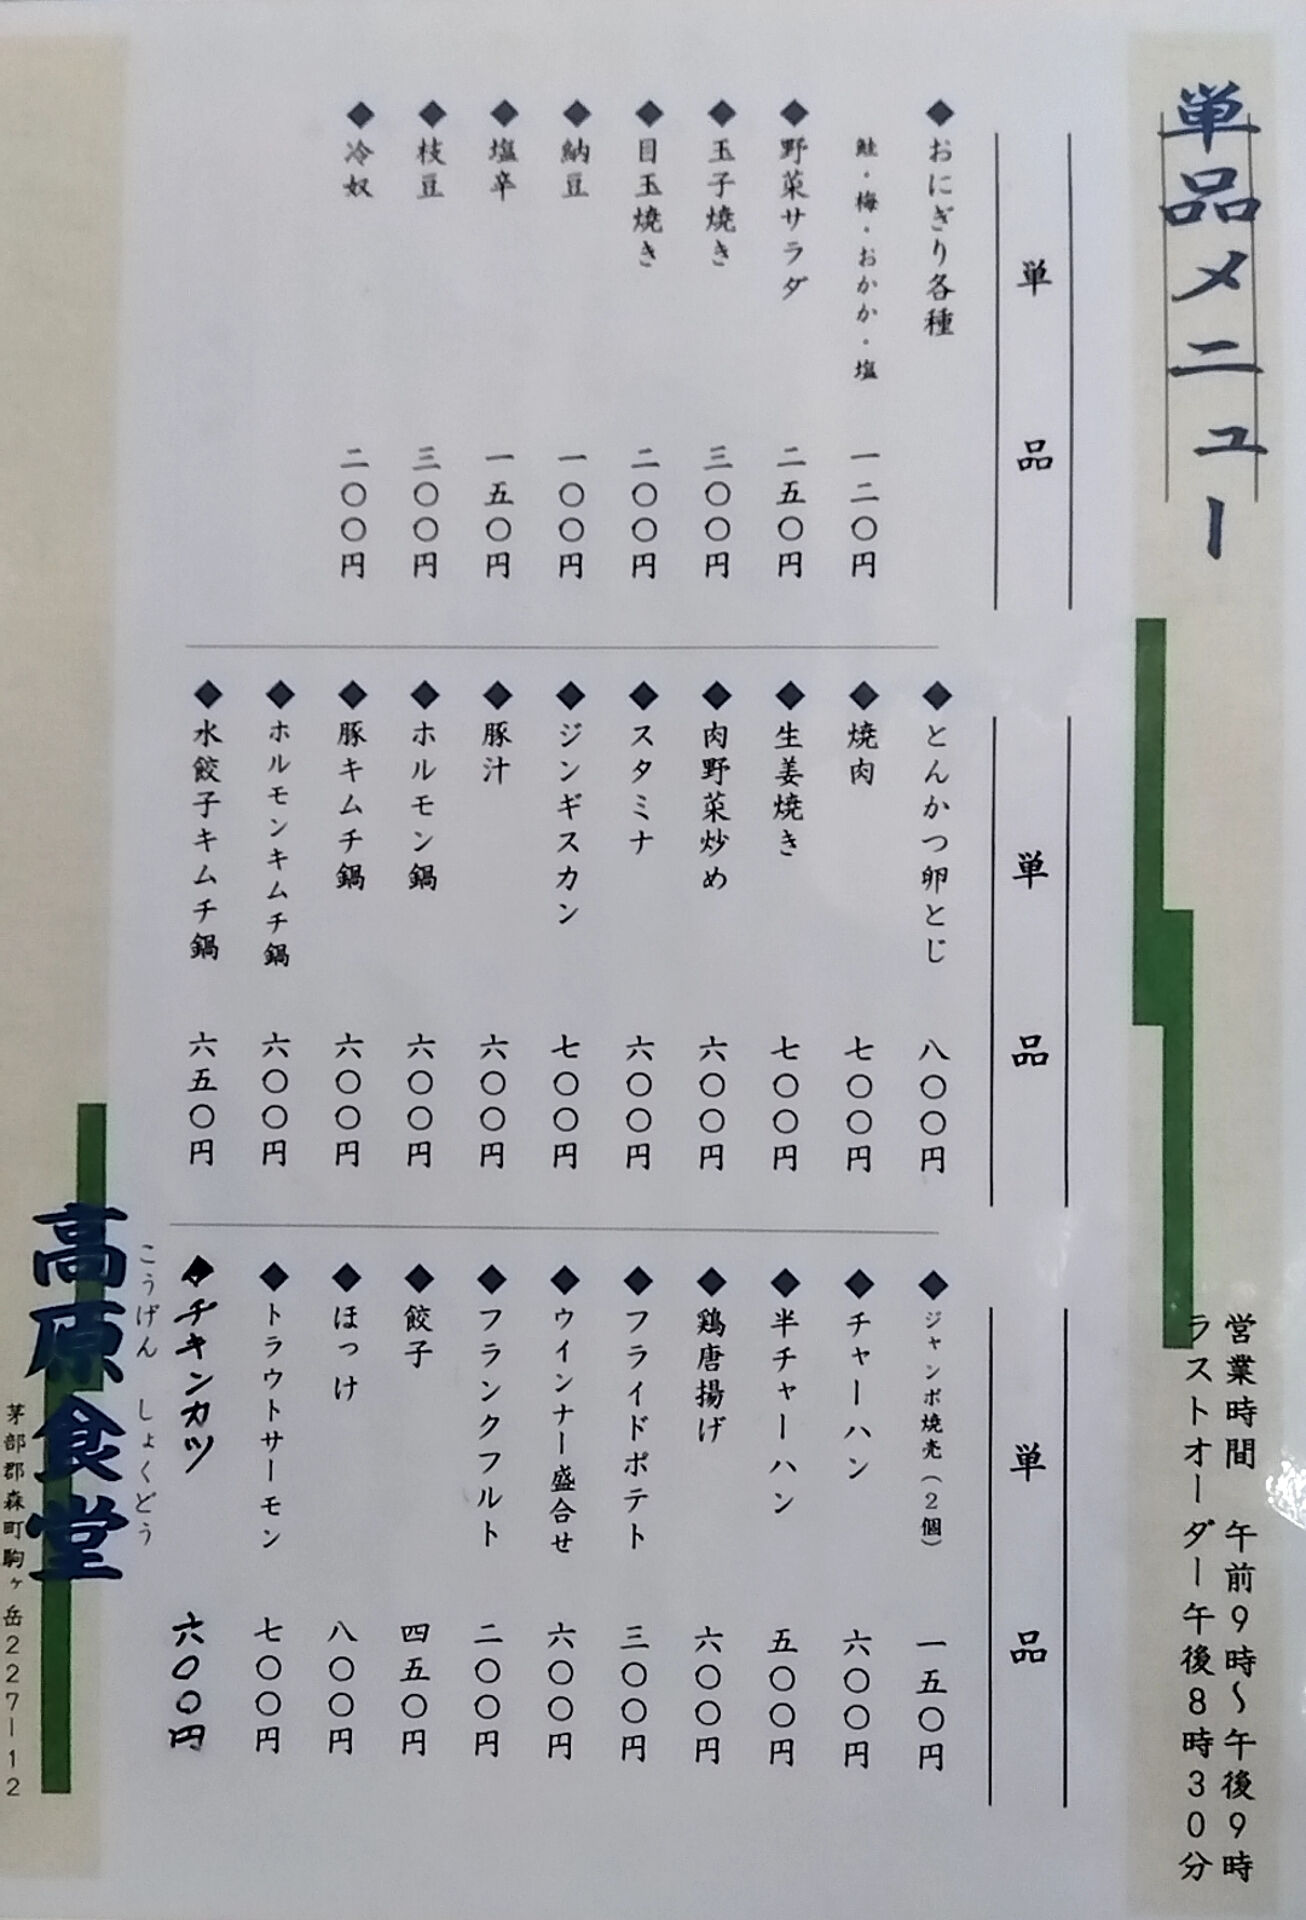 単品メニュー
営業時間 午前9時〜午後9時
ラストオーダー午後8時30分
単品
◆おにぎり各種
鮭・梅・おかか・塩 一二〇円
◆野菜サラダ 二五〇円
◆玉子焼き 三〇〇円
◆目玉焼き 二〇〇円
◆納豆 一〇〇円
◆塩辛 一五〇円
◆枝豆 三〇〇円
◆冷奴 二〇〇円
単品
◆とんかつ卵とじ 八〇〇円
◆焼肉 七〇〇円
◆生姜焼き 七〇〇円
◆肉野菜炒め 六〇〇円
◆スタミナ 六〇〇円
◆ジンギスカン 七〇〇円
◆豚汁 六〇〇円
◆ホルモン鍋 六〇〇円
◆豚キムチ鍋 六〇〇円
◆ホルモンキムチ鍋 六〇〇円
◆水餃子キムチ鍋 六五〇円
単品
◆ジャンボ焼売（2個） 一五〇円
◆チャーハン 六〇〇円
◆半チャーハン 五〇〇円
◆鶏唐揚げ 六〇〇円
◆フライドポテト 三〇〇円
◆ウインナー盛合せ 六〇〇円
◆フランクフルト 二〇〇円
◆餃子 四五〇円
◆ほっけ 八〇〇円
◆トラウトサーモン 七〇〇円
◆チキンカツ 六〇〇円
こうげん しょくどう
高原食堂
茅部郡森町駒ヶ岳227-12